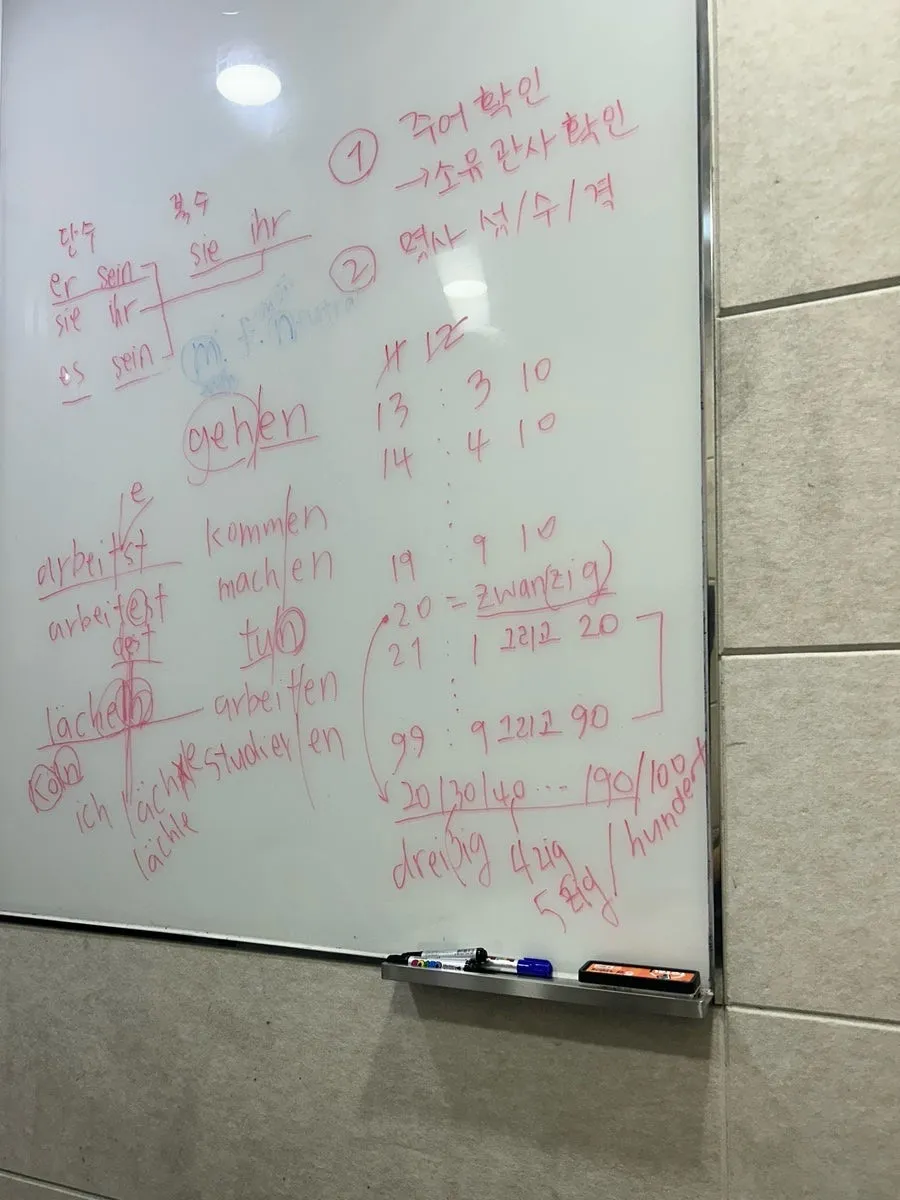 ① 주어 확인
→소유관사 확인
② 명사 성/수/격
단수 복수
er sein sie ihr
sie ihr
es sein
m. f. n
geh/en
e
arbeitst
arbeitest
det
lächeln
ich läche
lächle
komm/en
mach/en
tu/n
arbeit/en
studier/en
11 12
13 : 3 10
14 : 4 10
19 : 9 10
20 = zwan(zig)
21 : 1 그리고 20
99 : 9 그리고 90
20/30/40 ... /90/100
dreißig 4zig
5zig/hundert